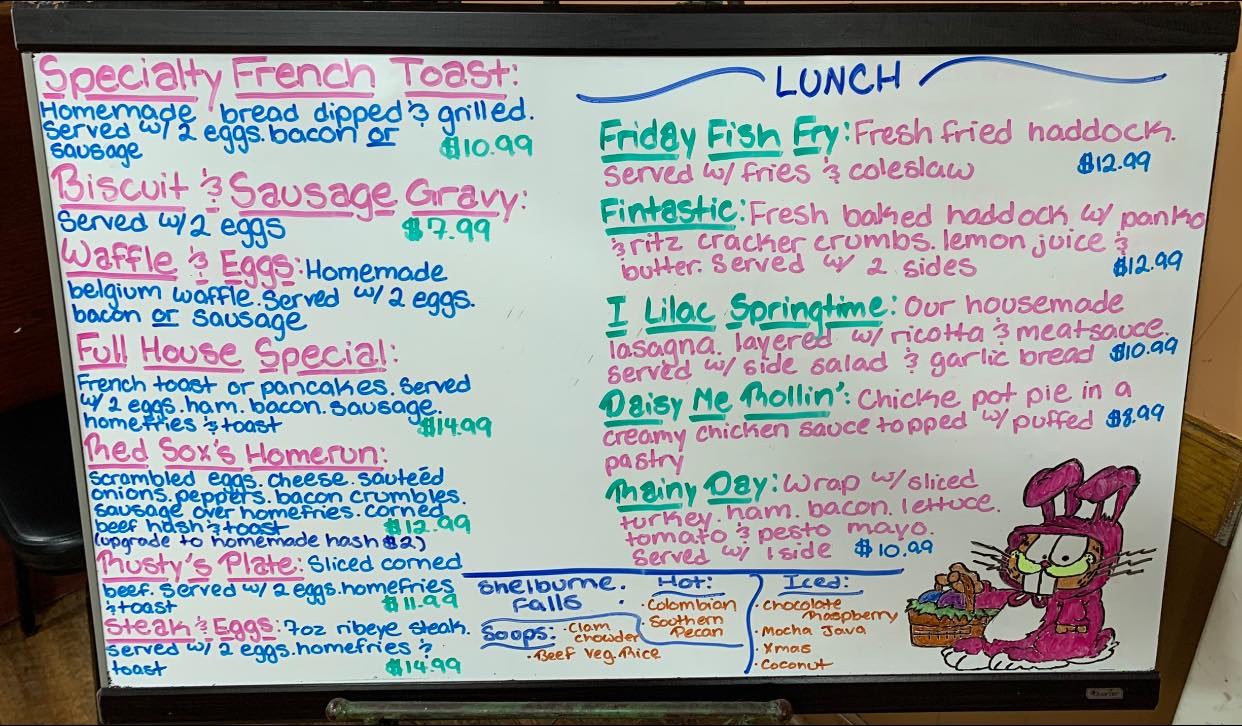 Specialty French Toast:
Homemade bread dipped & grilled.
served w/ 2 eggs. bacon or
sausage $10.99
Biscuit & Sausage Gravy:
Served w/ 2 eggs $7.99
Waffle & Eggs: Homemade
belgium waffle. Served w/ 2 eggs.
bacon or sausage
Full House Special:
French toast or pancakes. Served
w/ 2 eggs. ham. bacon. sausage.
homefries & toast $14.99
Red Sox's Homerun:
scrambled eggs. cheese. sauteéd
onions. peppers. bacon crumbles.
sausage over homefries. corned
beef hash & toast $12.99
(upgrade to homemade hash $2)
Rusty's Plate: Sliced corned
beef. Served w/ 2 eggs. homefries
& toast $11.99
Steak & Eggs: 7oz ribeye steak.
served w/ 2 eggs. homefries &
toast $14.99
LUNCH
Friday Fish Fry: Fresh fried haddock.
Served w/ fries & coleslaw $12.99
Fintastic: Fresh baked haddock w/ panko
& ritz cracker crumbs. lemon juice &
butter. Served w/ 2 sides $12.99
I Lilac Springtime: Our housemade
lasagna. layered w/ ricotta & meatsauce.
served w/ side salad & garlic bread $10.99
Daisy Me Rollin': Chicke pot pie in a
creamy chicken sauce topped w/ puffed $8.99
pastry
Rainy Day: Wrap w/ sliced
turkey. ham. bacon. lettuce.
tomato & pesto mayo.
Served w/ 1 side $10.99
Shelburne.
Falls
Hot:
· Colombian
· Southern
Pecan
Iced:
· Chocolate
Raspberry
· Mocha Java
· Xmas
· Coconut
Soups: · Clam
chowder
· Beef Veg. Rice